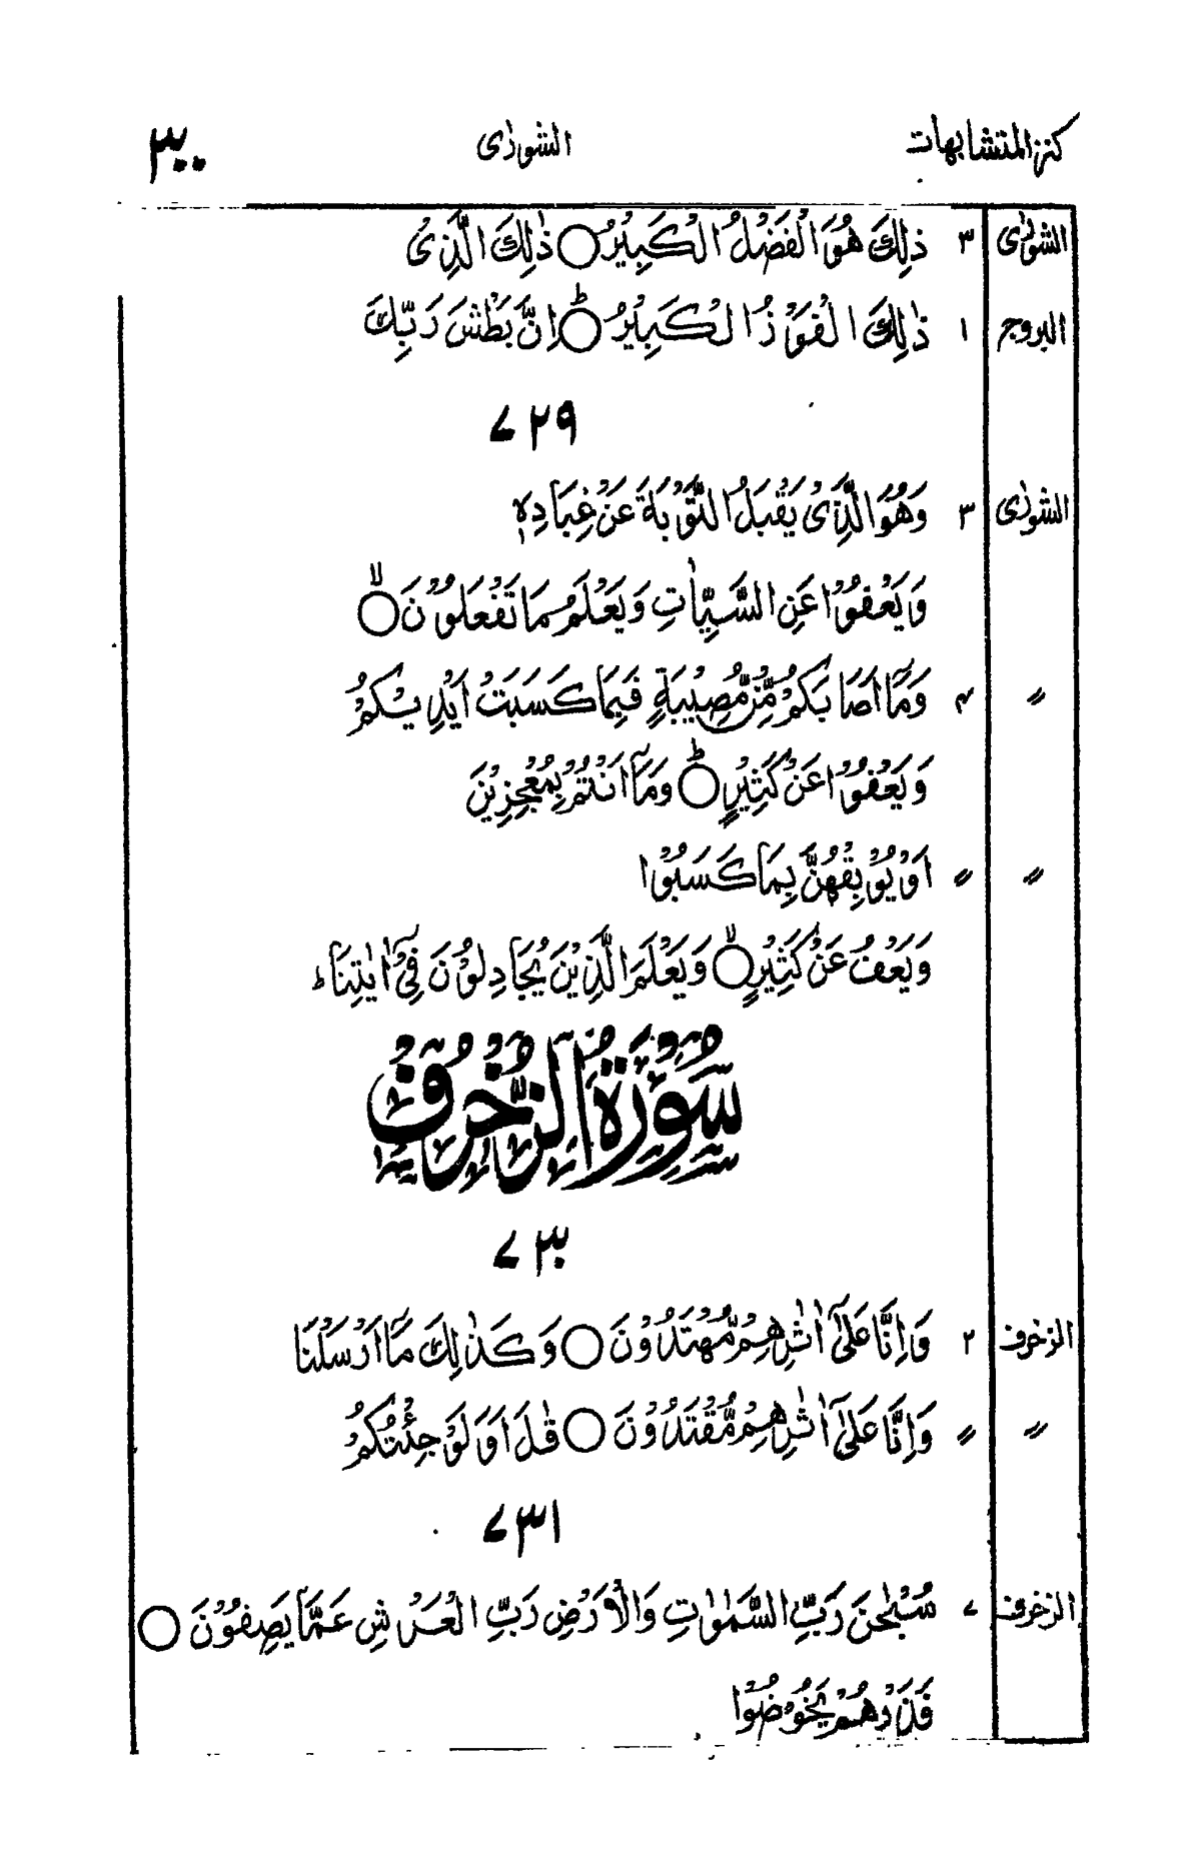 كنز المتشابهات الشورٰى ٣٠٠
الشورٰى ٣ ذٰلِكَ هُوَ الْفَضْلُ الْكَبِيْرُ ○ ذٰلِكَ الَّذِىْ
البروج ١ ذٰلِكَ الْفَوْزُ الْكَبِيْرُ ○ؕ اِنَّ بَطْشَ رَبِّكَ
٧٢٩
الشورٰى ٣ وَهُوَ الَّذِىْ يَقْبَلُ التَّوْبَةَ عَنْ عِبَادِهٖ
وَيَعْفُوْا عَنِ السَّيِّاٰتِ وَيَعْلَمُ مَا تَفْعَلُوْنَ ○ۙ
〃 ٤ وَمَآ اَصَابَكُمْ مِّنْ مُّصِيْبَةٍ فَبِمَا كَسَبَتْ اَيْدِيْكُمْ
وَيَعْفُوْا عَنْ كَثِيْرٍ ○ؕ وَمَآ اَنْتُمْ بِمُعْجِزِيْنَ
〃 〃 اَوْ يُوْبِقْهُنَّ بِمَا كَسَبُوْا
وَيَعْفُ عَنْ كَثِيْرٍ ○ۙ وَيَعْلَمَ الَّذِيْنَ يُجَادِلُوْنَ فِىْٓ اٰيٰتِنَاء
سُوْرَةُ الزُّخْرُفِ
٧٣٠
الزخرف ٢ وَاِنَّا عَلٰٓى اٰثٰرِهِمْ مُّهْتَدُوْنَ ○ وَكَذٰلِكَ مَآ اَرْسَلْنَا
〃 〃 وَاِنَّا عَلٰٓى اٰثٰرِهِمْ مُّقْتَدُوْنَ ○ قٰلَ اَوَلَوْ جِئْتُكُمْ
٧٣١
الزخرف ٧ سُبْحٰنَ رَبِّ السَّمٰوٰتِ وَالْاَرْضِ رَبِّ الْعَرْشِ عَمَّا يَصِفُوْنَ ○
فَذَرْهُمْ يَخُوْضُوْا